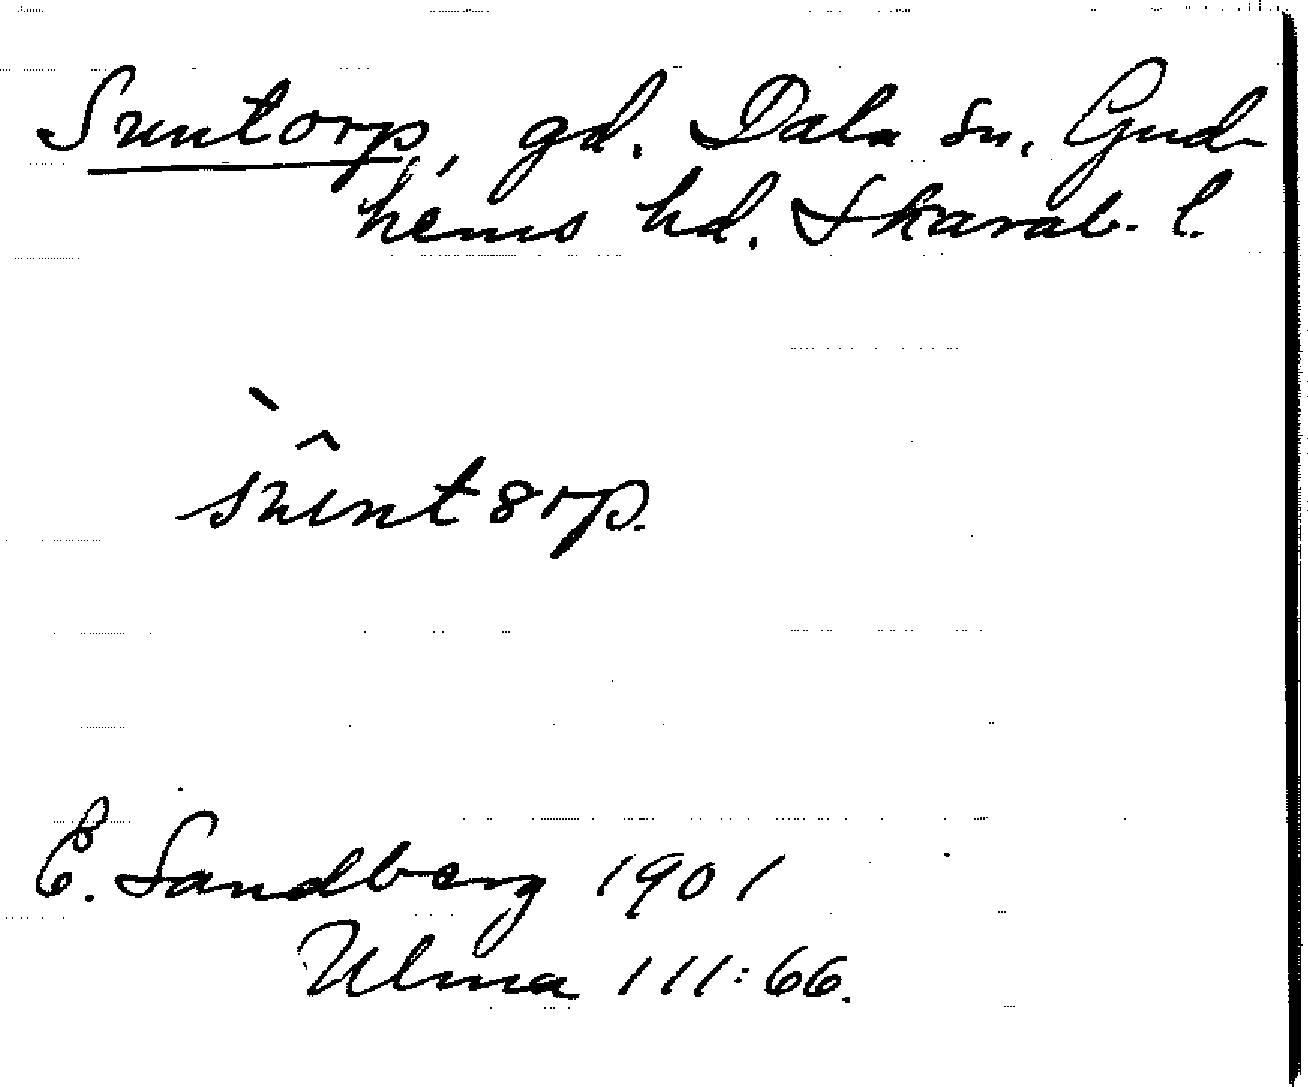 Suntorp, gd. Dala sn. Gud-
hems hd. Skarab. l.
E. Sandberg 1901
Ulma 111:66.